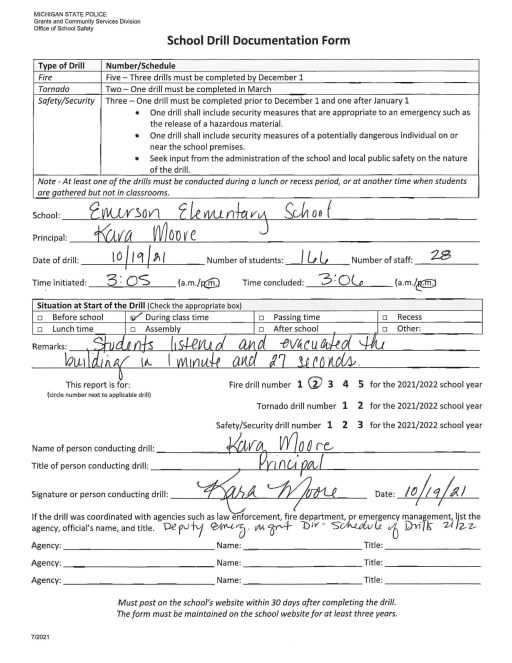 MICHIGAN STATE POLICE
Grants and Community Services Division
Office of School Safety
School Drill Documentation Form
Type of Drill Number/Schedule
Fire Five – Three drills must be completed by December 1
Tornado Two – One drill must be completed in March
Safety/Security Three – One drill must be completed prior to December 1 and one after January 1
• One drill shall include security measures that are appropriate to an emergency such as
the release of a hazardous material.
• One drill shall include security measures of a potentially dangerous individual on or
near the school premises.
• Seek input from the administration of the school and local public safety on the nature
of the drill.
Note - At least one of the drills must be conducted during a lunch or recess period, or at another time when students
are gathered but not in classrooms.
School: Emerson Elementary School
Principal: Kara Moore
Date of drill: 10/19/21 Number of students: 166 Number of staff: 28
Time initiated: 3:05 (a.m./p.m.) Time concluded: 3:06 (a.m./p.m.)
Situation at Start of the Drill (Check the appropriate box)
□ Before school ☑ During class time □ Passing time □ Recess
□ Lunch time □ Assembly □ After school □ Other:
Remarks: Students listened and evacuated the
building in 1 minute and 27 seconds.
This report is for: Fire drill number 1 2 3 4 5 for the 2021/2022 school year
(circle number next to applicable drill)
Tornado drill number 1 2 for the 2021/2022 school year
Safety/Security drill number 1 2 3 for the 2021/2022 school year
Name of person conducting drill: Kara Moore
Title of person conducting drill: Principal
Signature or person conducting drill: Kara Moore Date: 10/19/21
If the drill was coordinated with agencies such as law enforcement, fire department, or emergency management, list the
agency, official's name, and title. Deputy emerg. mgnt Dir - Schedule of Drills 21/22
Agency: Name: Title:
Agency: Name: Title:
Agency: Name: Title:
Must post on the school's website within 30 days after completing the drill.
The form must be maintained on the school website for at least three years.
7/2021